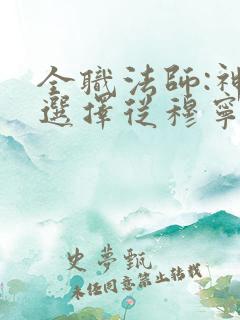 全職法師:神
選擇從穆寧
史夢甄
未经同意禁止转载